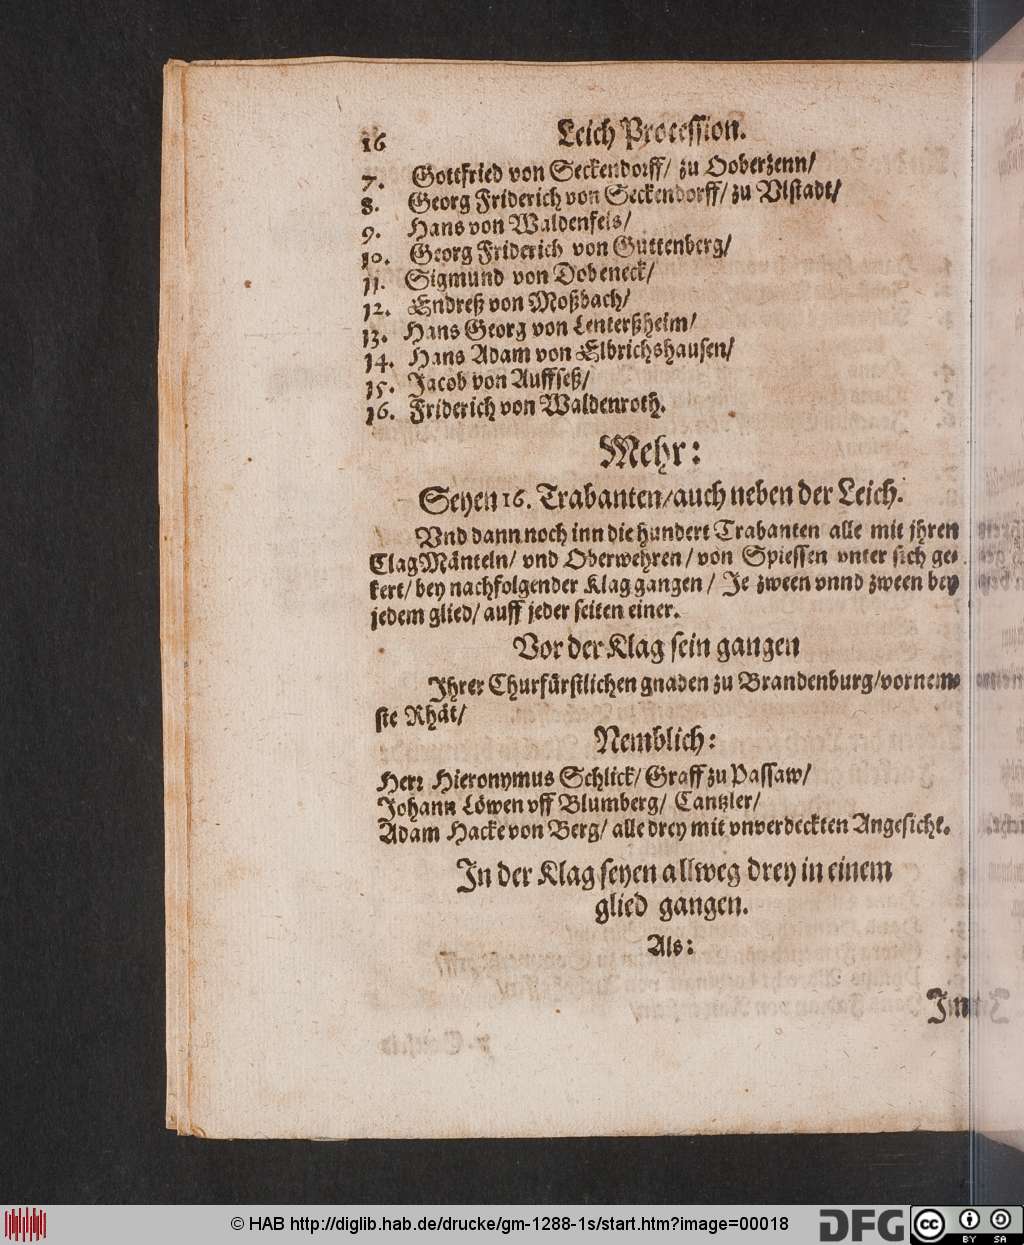 16 Leich Procession.
7. Gottfried von Seckendorff/ zu Ooberzenn/
8. Georg Friderich von Seckendorff/ zu Vlstadt/
9. Hans von Waldenfels/
10. Georg Friderich von Guttenberg/
11. Sigmund von Dobeneck/
12. Endreß von Moßbach/
13. Hans Georg von Lenterßheim/
14. Hans Adam von Elbrichshausen/
15. Jacob von Auffseß/
16. Friderich von Waldenroth.
Mehr:
Seyen 16. Trabanten/ auch neben der Leich.
Vnd dann noch inn die hundert Trabanten alle mit jhren
Clag Mänteln/ vnd Oberwehren/ von Spiessen vnter sich ge-
kert/ bey nachfolgender Klag gangen/ Je zween vnnd zween bey
jedem glied/ auff jeder seiten einer.
Vor der Klag sein gangen
Jhrer Churfürstlichen gnaden zu Brandenburg/ vornem-
ste Rhät/
Nemblich:
Herr Hieronymus Schlick/ Graff zu Passaw/
Johann Löwen vff Blumberg/ Cantzler/
Adam Hacke von Berg/ alle drey mit vnverdeckten Angesicht.
In der Klag seyen allweg drey in einem
glied gangen.
Als:
Im
© HAB http://diglib.hab.de/drucke/gm-1288-1s/start.htm?image=00018
DFG
cc
BY SA